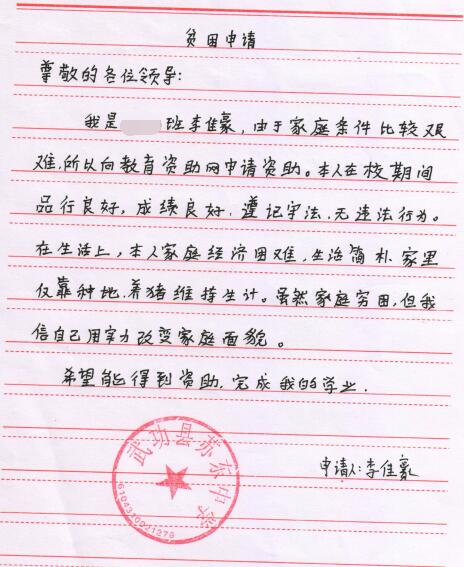 贫困申请
尊敬的各位领导:
我是 班李佳豪,由于家庭条件比较艰
难,所以向教育资助网申请资助。本人在校期间
品行良好,成绩良好.遵记守法.无违法行为。
在生活上,本人家庭经济困难,生活简朴家里
仅靠种地.养猪维持生计。虽然家庭穷困,但我
信自己用实力改变家庭面貌。
希望能得到资助.完成我的学业.
武功县苏东中学
6104310021279
申请人:李佳豪